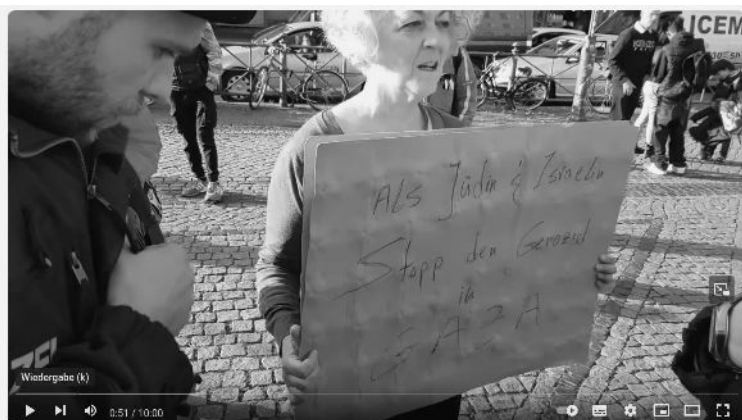 LICEM
Als Jüdin & Israelin
Stopp den Genozid
in
GAZA
Wiedergabe (k)
0:51 / 10:00